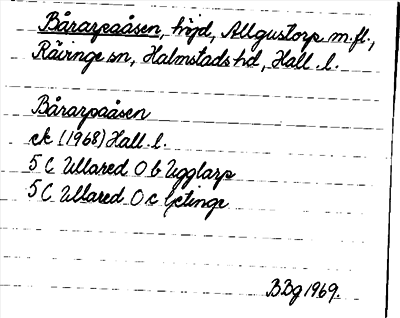 Bårarpaåsen, höjd, Allgustorp m.fl.,
Rävinge sn, Halmstads hd, Hall. l.
Bårarpaåsen
ek (1968) Hall. l.
5 C Ullared 0 b Ugglarp
5 C Ullared 0 c Getinge
BBg 1969.